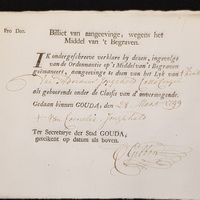 Pro Deo.
Billiet van aangeevinge, wegens het
Middel van 't Begraven.
IK ondergeschreve verklare by dezen, ingevolge
van de Ordonnantie op 't Middel van 't Begraven
geëmaneert, aangeevinge te doen van het Lyk van 't kind
als gehoorende onder de Classis van d' onvermogende.
Gedaan binnen GOUDA, den 21 Maart 1799
van Cornelis
Ter Secretarye der Stad GOUDA,
geteikent op datum als boven.